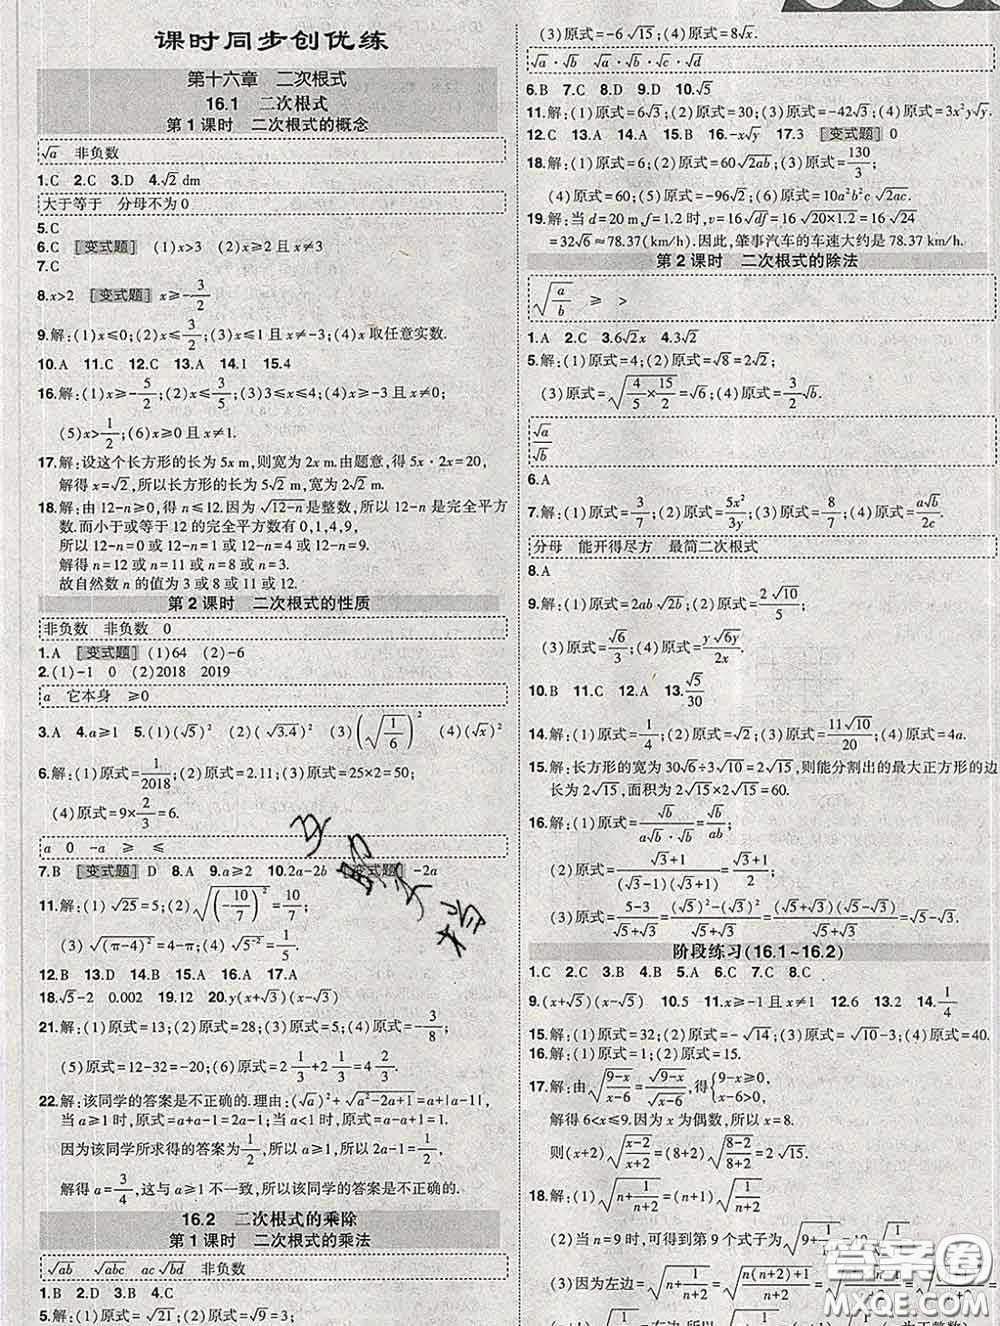 课时同步创优练
第十六章 二次根式
16.1 二次根式
第1课时 二次根式的概念
√a 非负数
1.C 2.C 3.D 4.√2 dm
大于等于 分母不为0
5.C
6.C [变式题] (1)x>3 (2)x≥2且x≠3
7.C
8.x>2 [变式题] x≥-3/2
9.解:(1)x≤0;(2)x≤3/2;(3)x≤1且x≠-3;(4)x取任意实数.
10.A 11.C 12.C 13.A 14.1 15.4
16.解:(1)x≥-5/2;(2)x≤3/5;(3)3≤x≤4;(4)x≥-3且x≠0;
(5)x>1/2;(6)x≥0且x≠1.
17.解:设这个长方形的长为5x m,则宽为2x m.由题意,得5x·2x=20,
解得x=√2,所以长方形的长为5√2 m,宽为2√2 m.
18.解:由12-n≥0,得n≤12.因为√(12-n)是整数,所以12-n是完全平方
数.而小于或等于12的完全平方数有0,1,4,9,
所以12-n=0或12-n=1或12-n=4或12-n=9.
解得n=12或n=11或n=8或n=3.
故自然数n的值为3或8或11或12.
第2课时 二次根式的性质
非负数 非负数 0
1.A [变式题] (1)64 (2)-6
2.(1)-1 0 (2)2018 2019
a 它本身 ≥0
3.A 4.a≥1 5.(1)(√5)² (2)(√3.4)² (3)(√(1/6))² (4)(√x)²
6.解:(1)原式=1/2018;(2)原式=2.11;(3)原式=25×2=50;
(4)原式=9×2/3=6.
a 0 -a ≥ ≤
7.B [变式题] D 8.A 9.a≥2 10.2a-2b [变式题] -2a
11.解:(1)√25=5;(2)√(-10/7)²=10/7;
(3)√(π-4)²=4-π;(4)√5⁻²=1/5
12.B 13.D 14.D 15.B 16.A 17.A
18.√5-2 0.002 19.12 20.y(x+√3)(x-√3)
21.解:(1)原式=13;(2)原式=28;(3)原式=5;(4)原式=-3/8;
(5)原式=12-32=-20;(6)原式=2 2/3+2=4 2/3.
22.解:该同学的答案是不正确的.理由:(√a)²+√(a²-2a+1)=a+|a-1|,
当a≥1时,原式=a+a-1=2a-1; 当a<1时,原式=a-a+1=1.
因为该同学所求得的答案为1/2,所以a≥1,所以2a-1=1/2,
解得a=3/4,这与a≥1不一致,所以该同学的答案是不正确的.
16.2 二次根式的乘除
第1课时 二次根式的乘法
√ab √abc ac√bd 非负数
1.B 2.D 3.B 4.C
5.解:(1)原式=√21;(2)原式=√9=3;
(3)原式=-6√15;(4)原式=8√x.
√a·√b √a·√b·√c·√d
6.B 7.C 8.D 9.D 10.√5
11.解:(1)原式=6√3;(2)原式=30;(3)原式=-42√3;(4)原式=3x²y√y.
12.C 13.A 14.A 15.B 16.-x√y 17.3 [变式题] 0
18.解:(1)原式=6;(2)原式=60√2ab;(3)原式=130/3;
(4)原式=60;(5)原式=-96√2;(6)原式=10a²b²c√2ac.
19.解:当d=20 m,f=1.2时,v=16√df=16×√(20×1.2)=16×√24
=32√6≈78.37(km/h).因此,肇事汽车的车速大约是78.37 km/h.
第2课时 二次根式的除法
√(a/b) ≥ >
1.A 2.C 3.6√2x 4.3√2
5.解:(1)原式=4;(2)原式=√8=2√2;
(3)原式=√(4/5×15/2)=√6;(4)原式=3/2√b.
√a/√b
6.A
7.解:(1)原式=3/7;(2)原式=5x²/3y;(3)原式=8/7;(4)原式=a√b/2c.
分母 能开得尽方 最简二次根式
8.A
9.解:(1)原式=2ab√2b;(2)原式=2√10/5;
(3)原式=√6/3;(4)原式=y√6y/2x.
10.B 11.C 12.A 13.√5/30
14.解:(1)原式=1/4;(2)原式=√2;(3)原式=11√10/20;(4)原式=4a.
15.解:长方形的宽为30√6÷3√10=2√15,则能分割出的最大正方形的边
长为2√15,面积为2√15×2√15=60.
16.解:(1)原式=√b/(a√b·√b)=√b/ab;
(2)原式=(√3+1)/((√3-1)(√3+1))=(√3+1)/2;
(3)原式=(5-3)/(√5+√3)=((√5)²-(√3)²)/(√5+√3)=((√5+√3)(√5-√3))/(√5+√3)=√5-√3.
阶段练习(16.1~16.2)
1.C 2.C 3.B 4.D 5.D 6.C 7.C 8.C
9.(x+√5)(x-√5) 10.5 11.x≥-1且x≠1 12.6 13.2 14.1/4
15.解:(1)原式=32;(2)原式=-√14;(3)原式=√10-3;(4)原式=40.
16.解:(1)原式=1;(2)原式=15.
17.解:由√((9-x)/(x-6))=√(9-x)/√(x-6),得{9-x≥0, x-6>0,
解得6<x≤9.因为x为偶数,所以x=8.
则(x+2)√((x-2)/(x+2))=(8+2)√((8-2)/(8+2))=2√15.
18.解:(1)√(n+1/(n+2))=(n+1)√(1/(n+2))
(2)当n=9时,可得到第9个式子为
(3)因为左边=√(n+1/(n+2))=√((n(n+2)+1)/(n+2))
答案圈
MXQE.COM